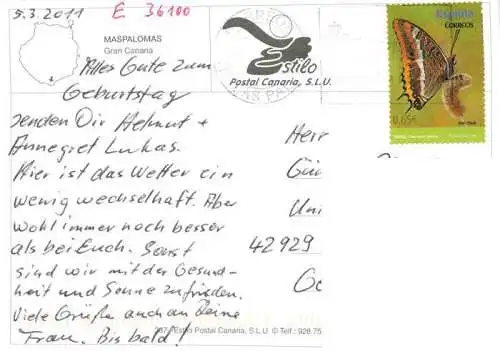 5.3.2011
E 36100
MASPALOMAS
Gran Canaria
Alles Gute zum
Geburtstag
senden Dir Helmut +
Annegret Lukas.
Hier ist das Wetter ein
wenig wechselhaft. Aber
wohl immer noch besser
als bei Euch. Sonst
sind wir mit der Gesund-
heit und Sonne zufrieden.
Viele Grüße auch an Deine
Frau. Bis bald!
Estilo
Postal Canaria, S.L.U.
España
CORREOS
0,65€
Herr
Gün
Uni
42929
Estilo Postal Canaria, S.L.U. © Telf.: 928 75